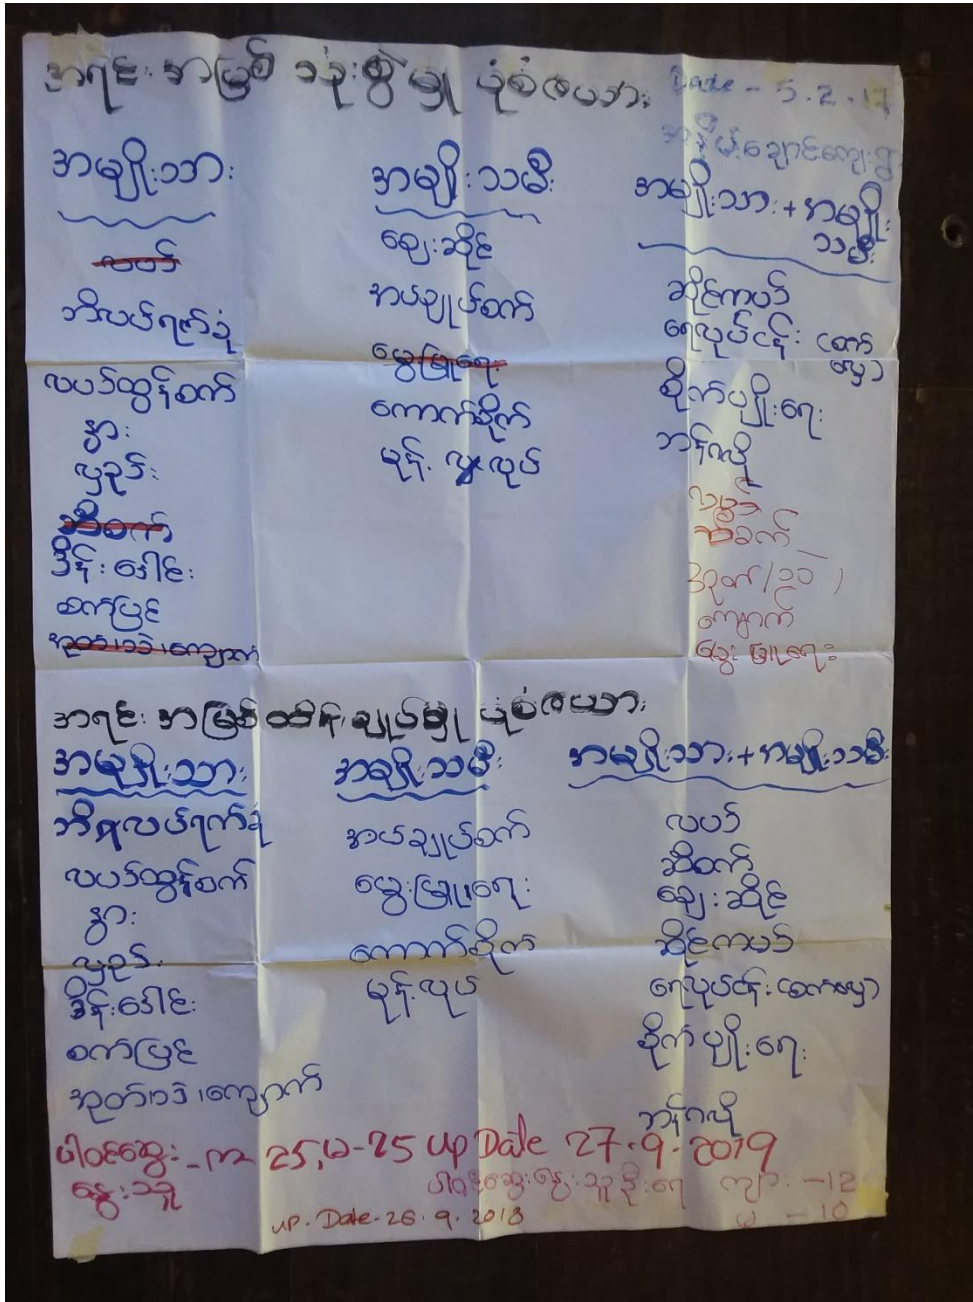 အရင်းအမြစ် သုံးစွဲမှု ပုံစံဇယား
Date - 5.2.17
အမျိုးသား
လယ်
ဘိလပ်ရက်ခုံ
လယ်ထွန်စက်
နွား
လှည်း
ဆီစက်
ဒိန်းဒေါင်း
စက်ပြင်
အုတ်၊သဲ၊ကျောက်
အမျိုးသမီး
ဈေးဆိုင်
အပ်ချုပ်စက်
မွေးမြူရေး
ကောက်စိုက်
မုန့် လုပ်
အမျိုးသား + အမျိုး
သမီး
ဆိုင်ကယ်
ရေလုပ်ငန်း (စက်
လှေ)
စိုက်ပျိုးရေး
ဘန်ဂလို
လယ်
ဆီစက်
အုတ်/သဲ/
ကျောက်
မွေးမြူရေး
အရင်းအမြစ် ထိန်းချုပ်မှု ပုံစံဇယား
အမျိုးသား
ဘိလပ်ရက်ခုံ
လယ်ထွန်စက်
နွား
လှည်း
ဒိန်းဒေါင်း
စက်ပြင်
အုတ်၊သဲ၊ကျောက်
အမျိုးသမီး
အပ်ချုပ်စက်
မွေးမြူရေး
ကောက်စိုက်
မုန့်လုပ်
အမျိုးသား + အမျိုးသမီး
လယ်
ဆီစက်
ဈေးဆိုင်
ဆိုင်ကယ်
ရေလုပ်ငန်း (စက်လှေ)
စိုက်ပျိုးရေး
ဘန်ဂလို
ပါဝင်ဆွေး - ကျား 25, မ-25 up Date 27.9.2019
နွေးသူ
ပါဝင်ဆွေးနွေးသူဦးရေ ကျား -12
မ -10
up.Date-26.9.2018